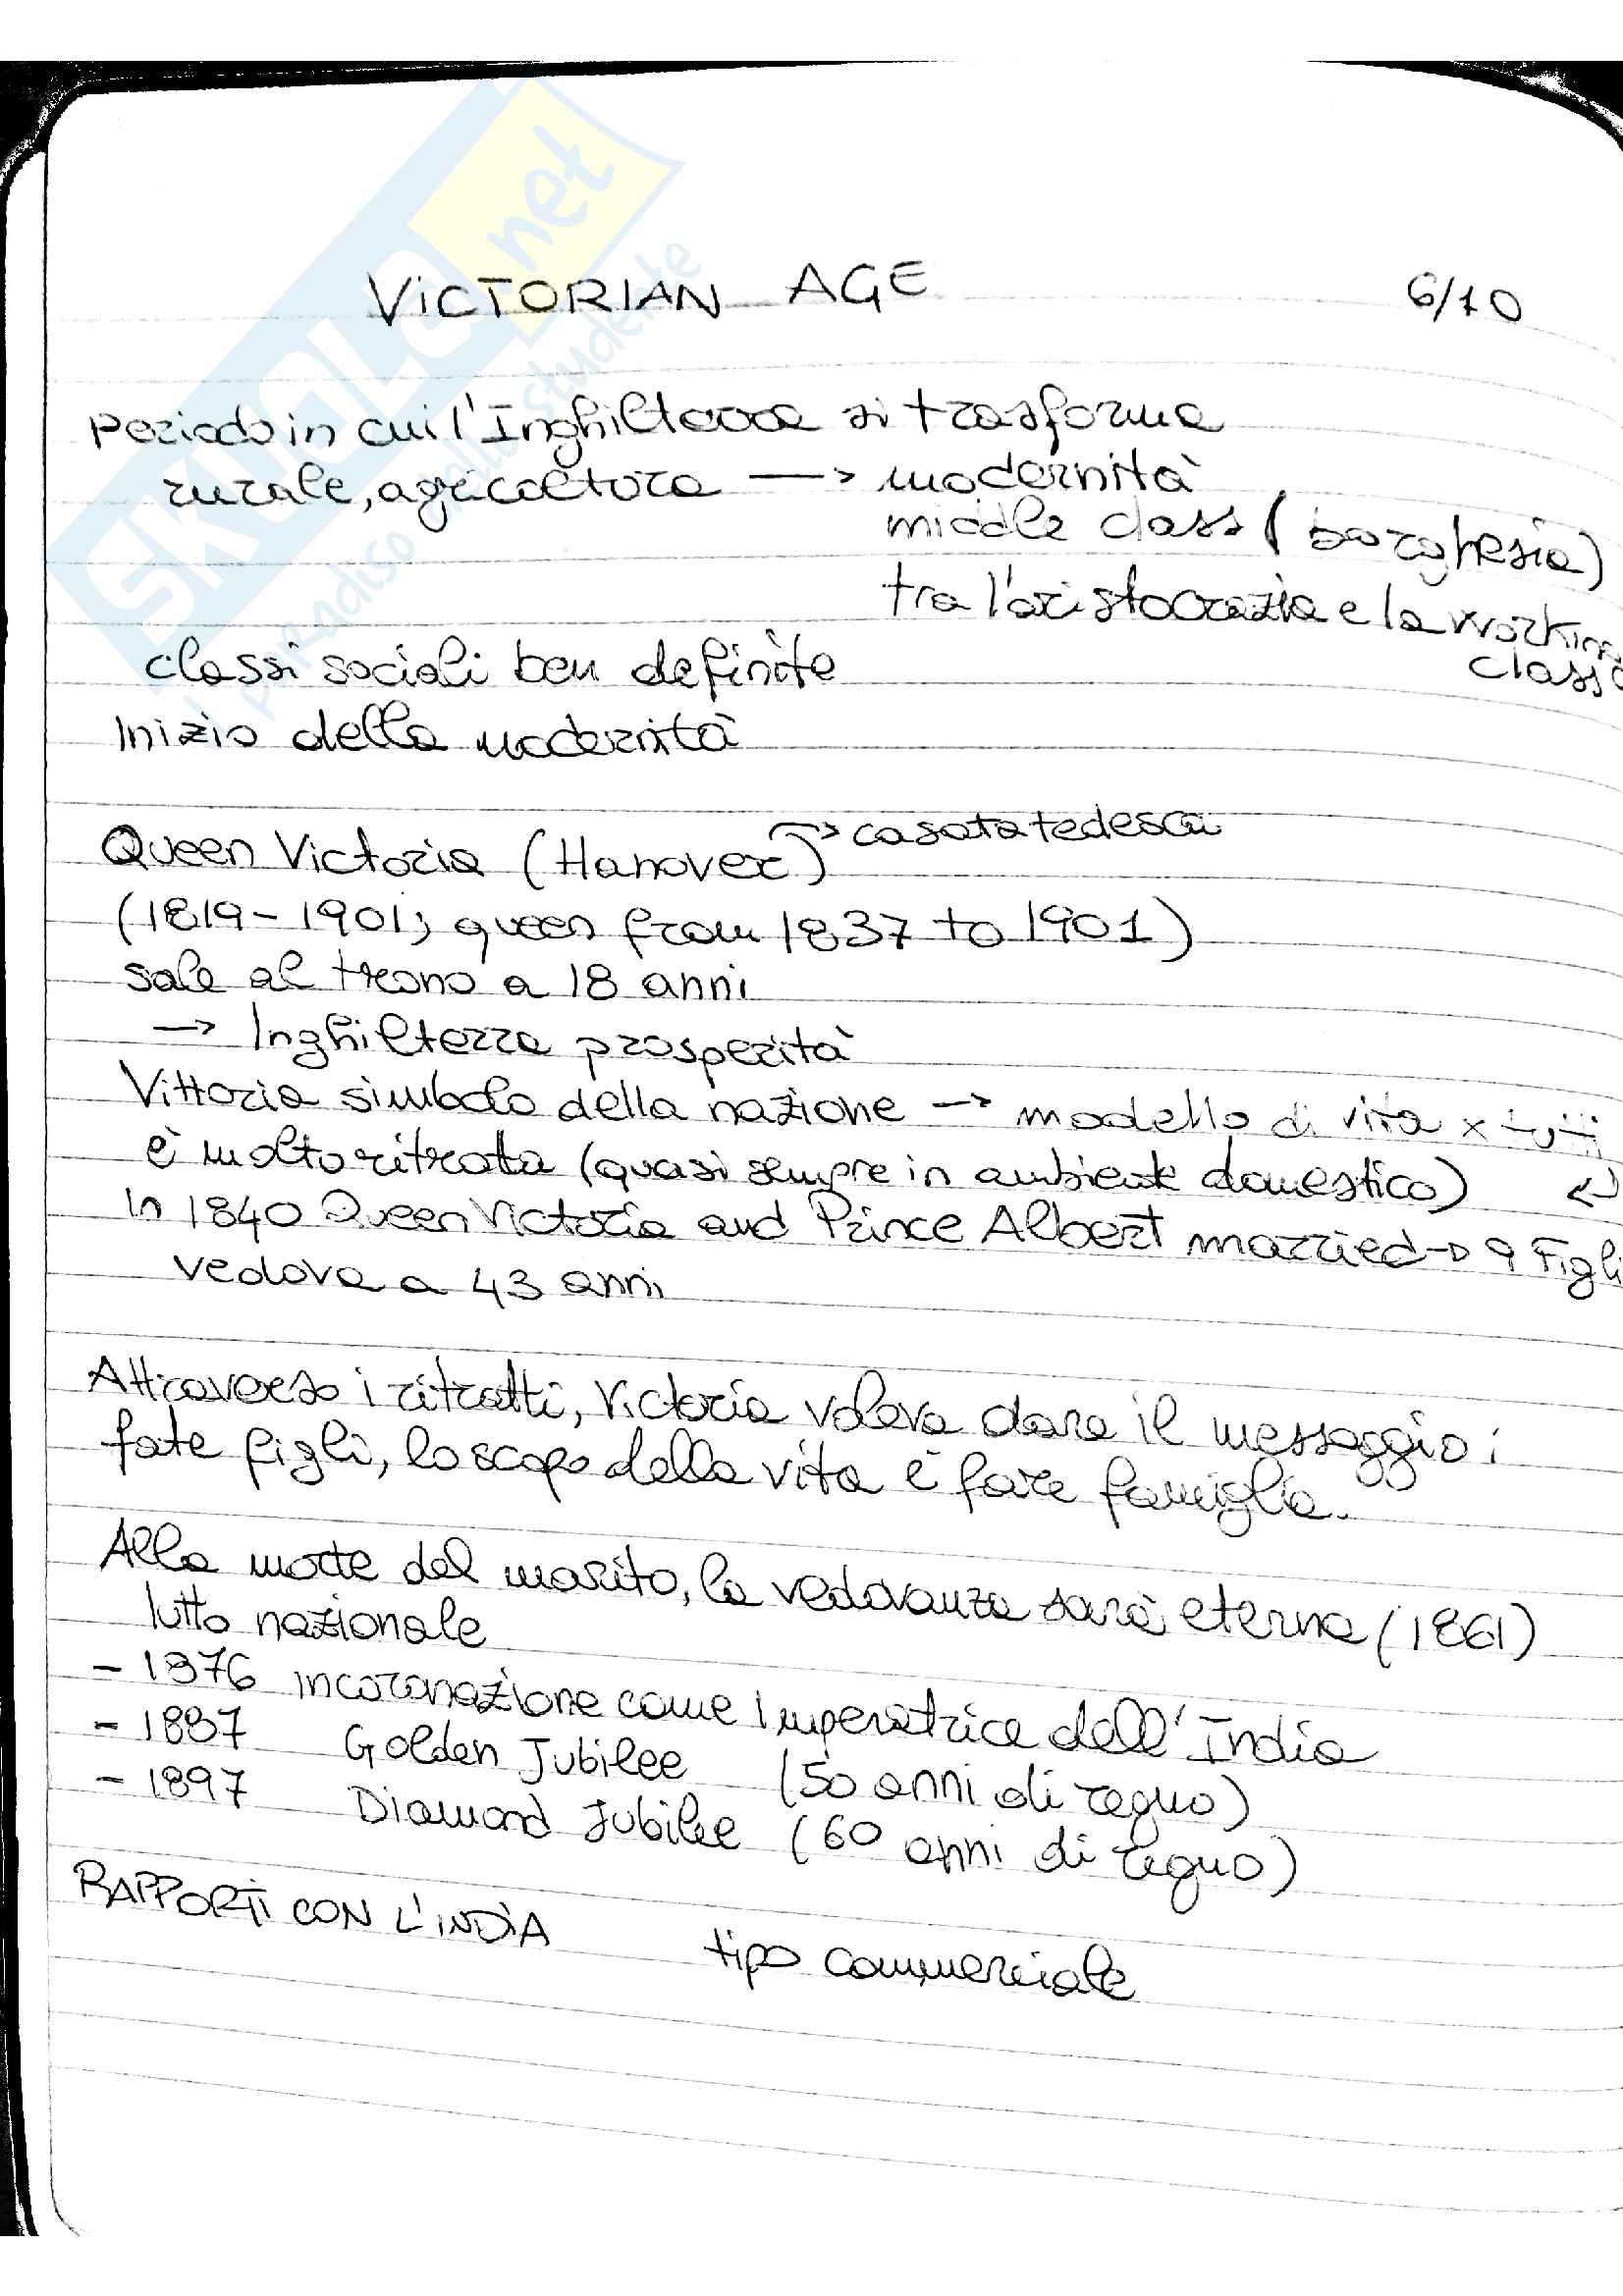 SKUOLA.net
il paradiso dello studente
VICTORIAN AGE 6/10
Periodo in cui l'Inghilterra si trasforma
rurale, agricoltura → modernità
middle class (borghesia)
tra l'aristocrazia e la working
class
classi sociali ben definite
Inizio della modernità
Queen Victoria (Hanover) → casata tedesca
(1819-1901; queen from 1837 to 1901)
sale al trono a 18 anni
→ Inghilterra prosperità
Vittoria simbolo della nazione → modello di vita x tutti
è molto ritratta (quasi sempre in ambiente domestico) ↵
In 1840 Queen Victoria and Prince Albert married → 9 Figli
vedova a 43 anni
Attraverso i ritratti, Victoria voleva dare il messaggio:
fate figli, lo scopo della vita è fare famiglia.
Alla morte del marito, la vedovanza sarà eterna (1861)
lutto nazionale
- 1876 incoronazione come Imperatrice dell'India
- 1887 Golden Jubilee (50 anni di regno)
- 1897 Diamond Jubilee (60 anni di regno)
RAPPORTI CON L'INDIA tipo commerciale